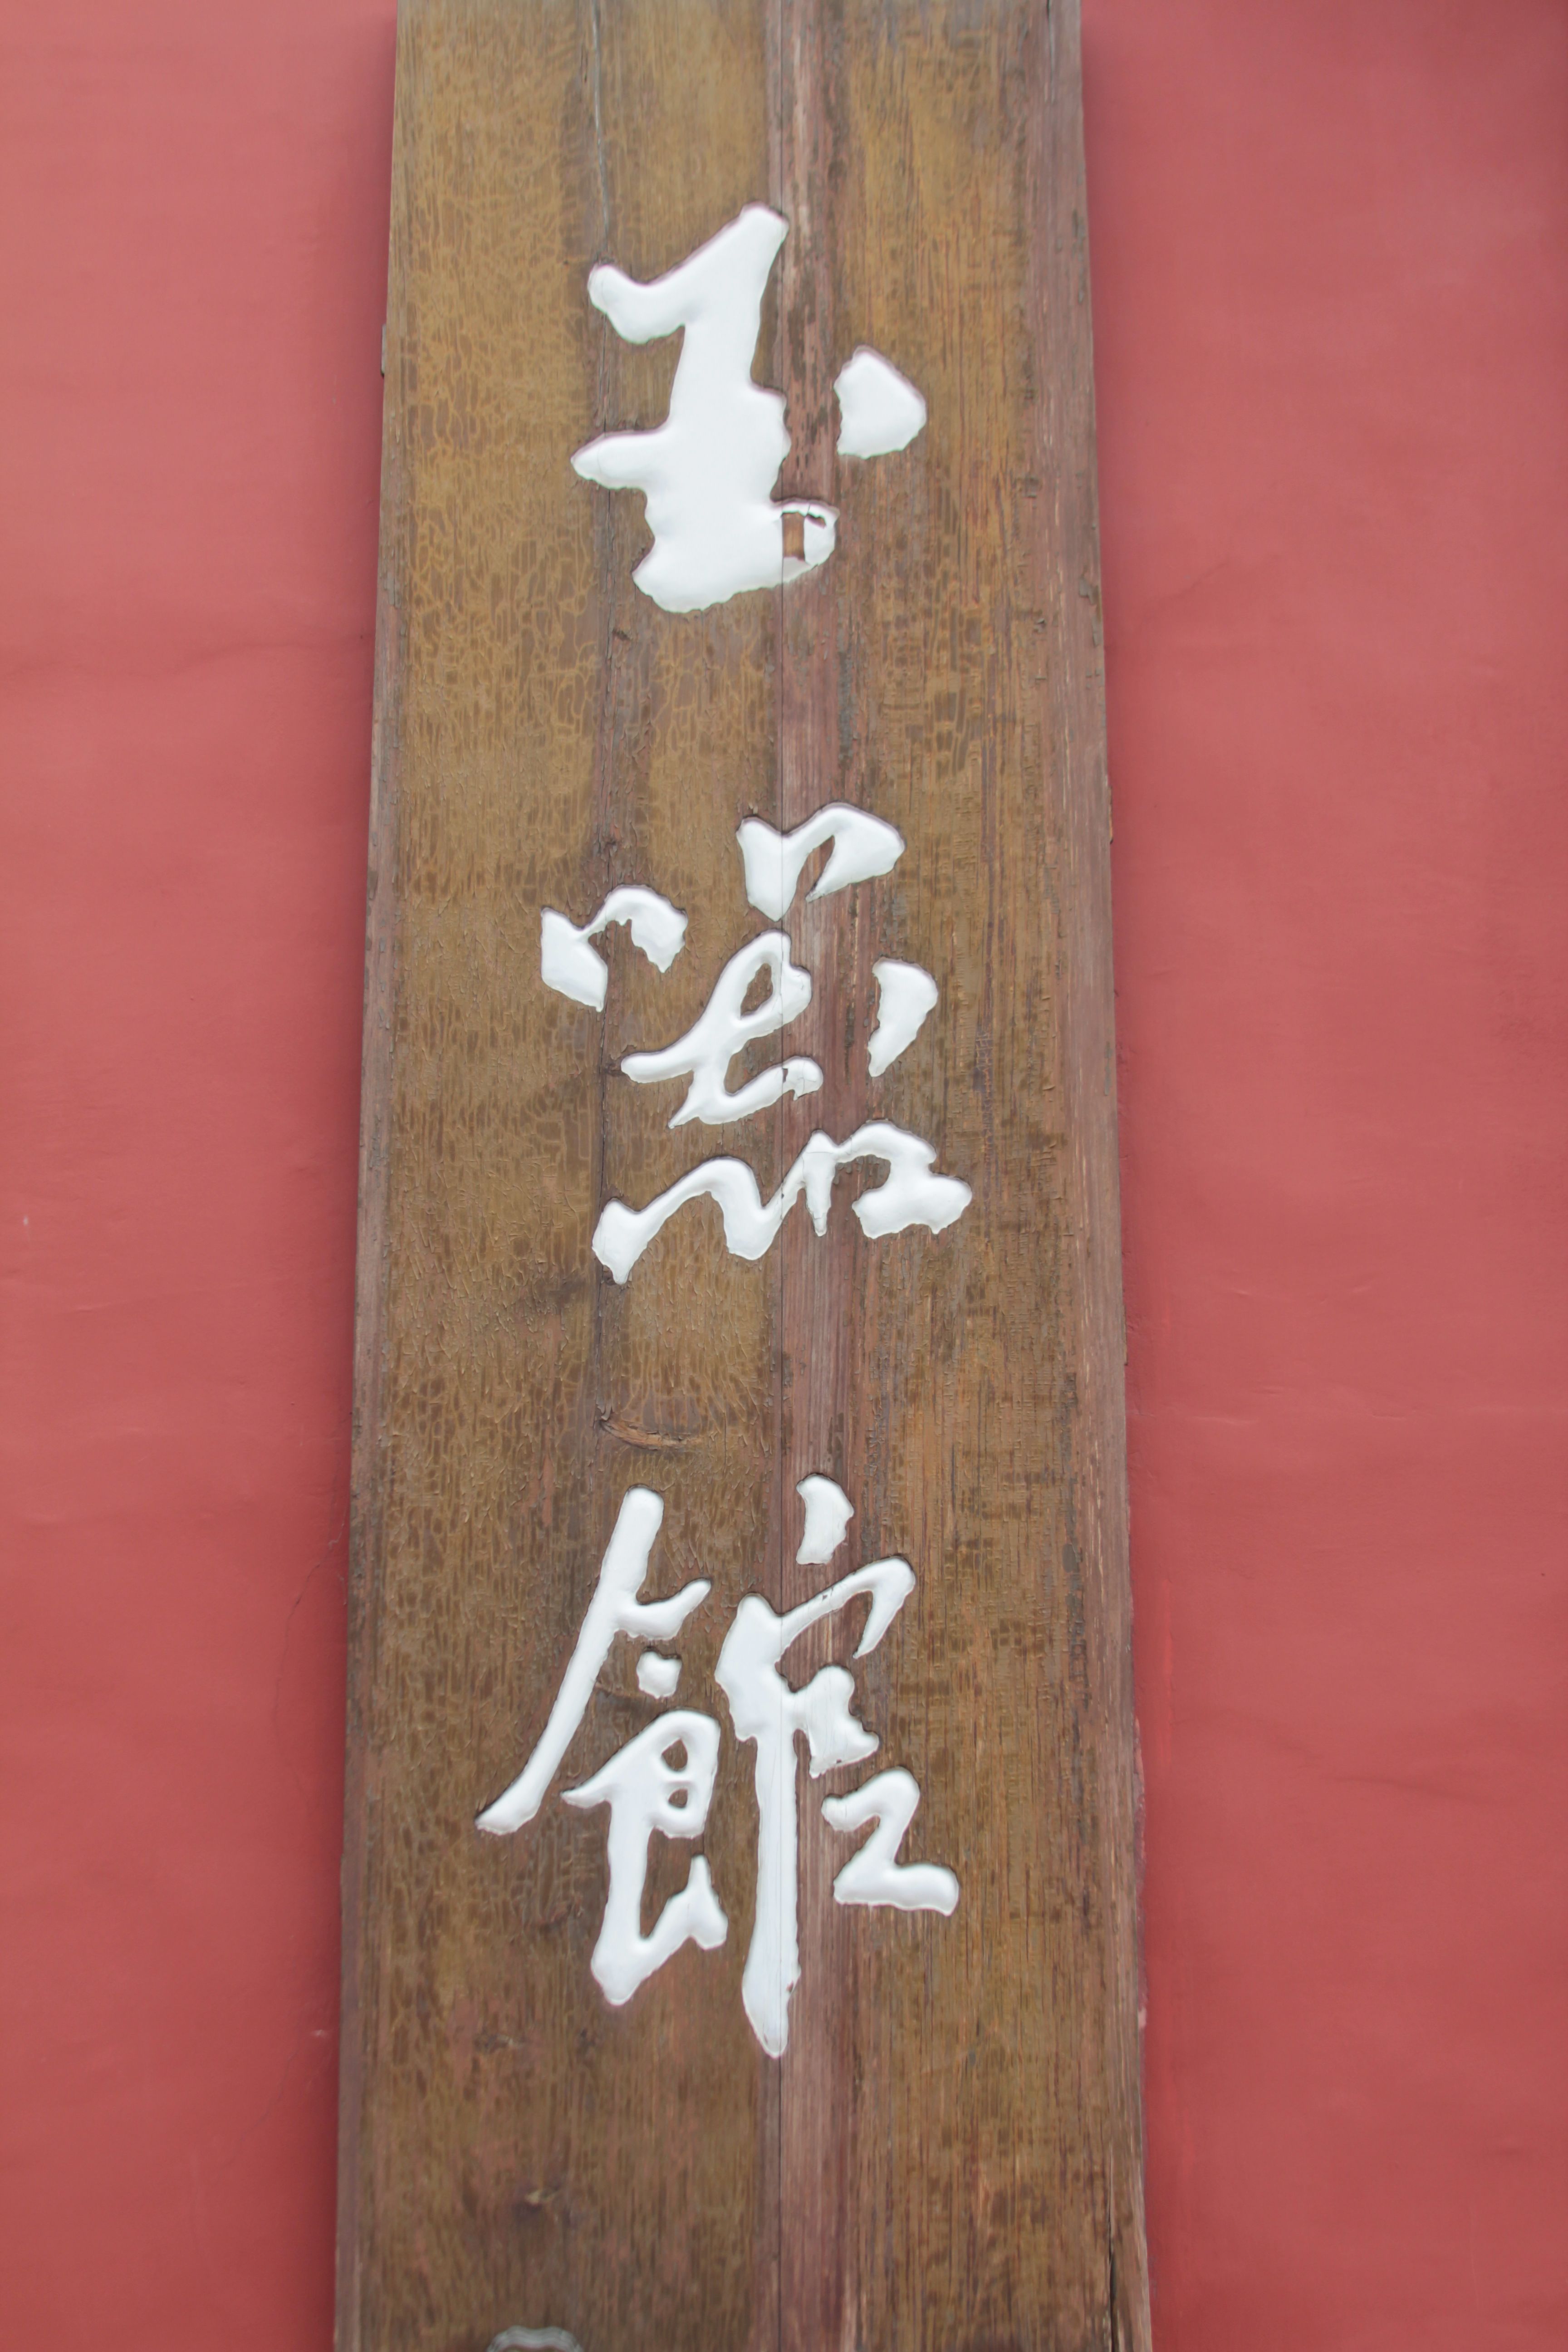 玉器館